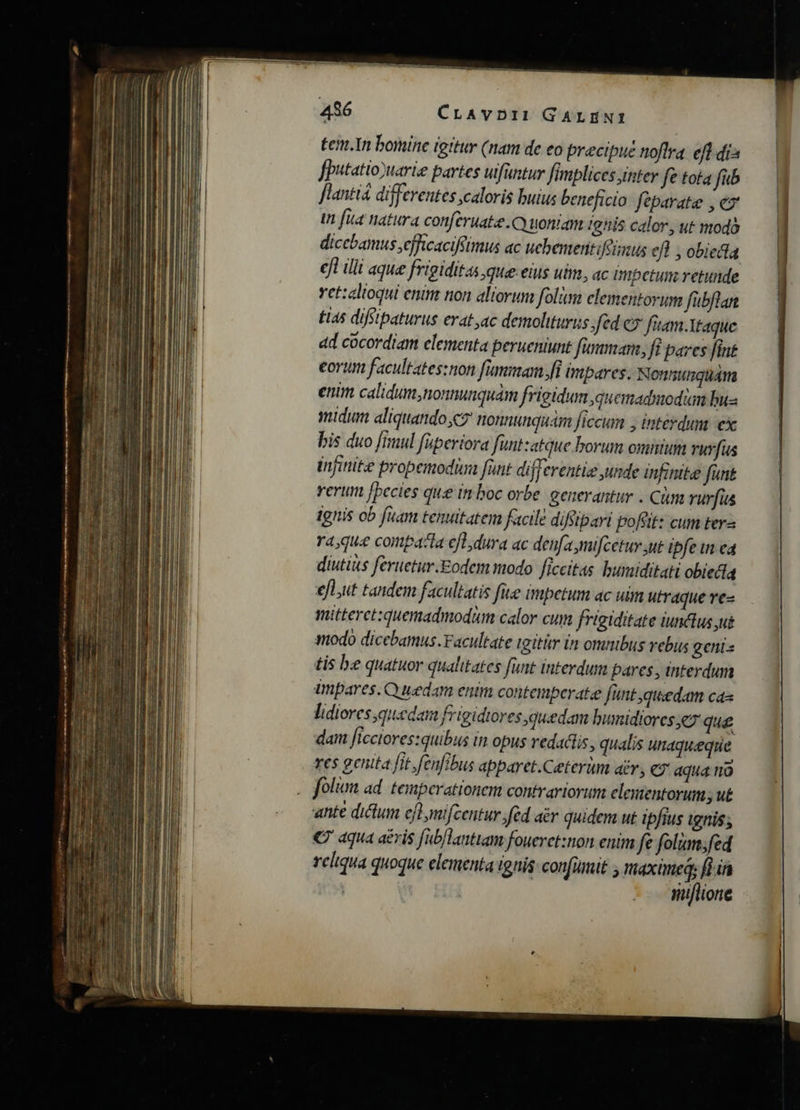 486 CLAVDII GALENI
tem. In homine igitur (nam de eo præcipuè nostra est dis
sputatio) uariæ partes uisuntur simplices, inter se tota sub
stantiâ differentes, caloris huius beneficio separatæ, &
in sua natura conseruatæ. Quoniam ignis calor, ut modò
dicebamus, efficacissimus ac uehementissimus est, obiecta
est illi aquæ frigiditas, quæ eius uim, ac impetum retunde
ret: alioqui enim non aliorum solùm elementorum substan
tias dissipaturus erat, ac demoliturus, sed & suam. Itaque
ad cōcordiam elementa perueniunt summam, si pares sint
eorum facultates: non summam, si impares. Nonnunquàm
enim calidum, nonnunquàm frigidum, quemadmodùm hu=
midum aliquando, & nonnunquàm siccum, interdum ex
his duo simul superiora sunt: atque horum omnium rursus
infinitæ propemodùm sunt differentiæ, unde infinitæ sunt
rerum species quæ in hoc orbe generantur. Cùm rursus
ignis ob suam tenuitatem facilè dissipari possit: cum ter=
ra, quæ compacta est, dura ac densa, miscetur, ut ipse in ea
diutiùs seruetur. Eodem modo siccitas humiditati obiecta
est, ut tandem facultatis suæ impetum ac uim utraque re=
mitteret: quemadmodùm calor cum frigiditate iunctus, ut
modò dicebamus. Facultate igitùr in omnibus rebus geni=
tis hæ quatuor qualitates sunt interdum pares, interdum
impares. Quædam enim contemperatæ sunt, quædam ca=
lidiores, quædam frigidiores, quædam humidiores, & quæ
dam sicciores: quibus in opus redactis, qualis unaquæque
res genita sit, sensibus apparet. Cæterùm aër, & aqua nō
solùm ad temperationem contrariorum elementorum, ut
ante dictum est, miscentur, sed aër quidem ut ipsius ignis,
& aqua aëris substantiam foueret: non enim se solùm, sed
reliqua quoque elementa ignis consumit, maximeq́; si in
mistione